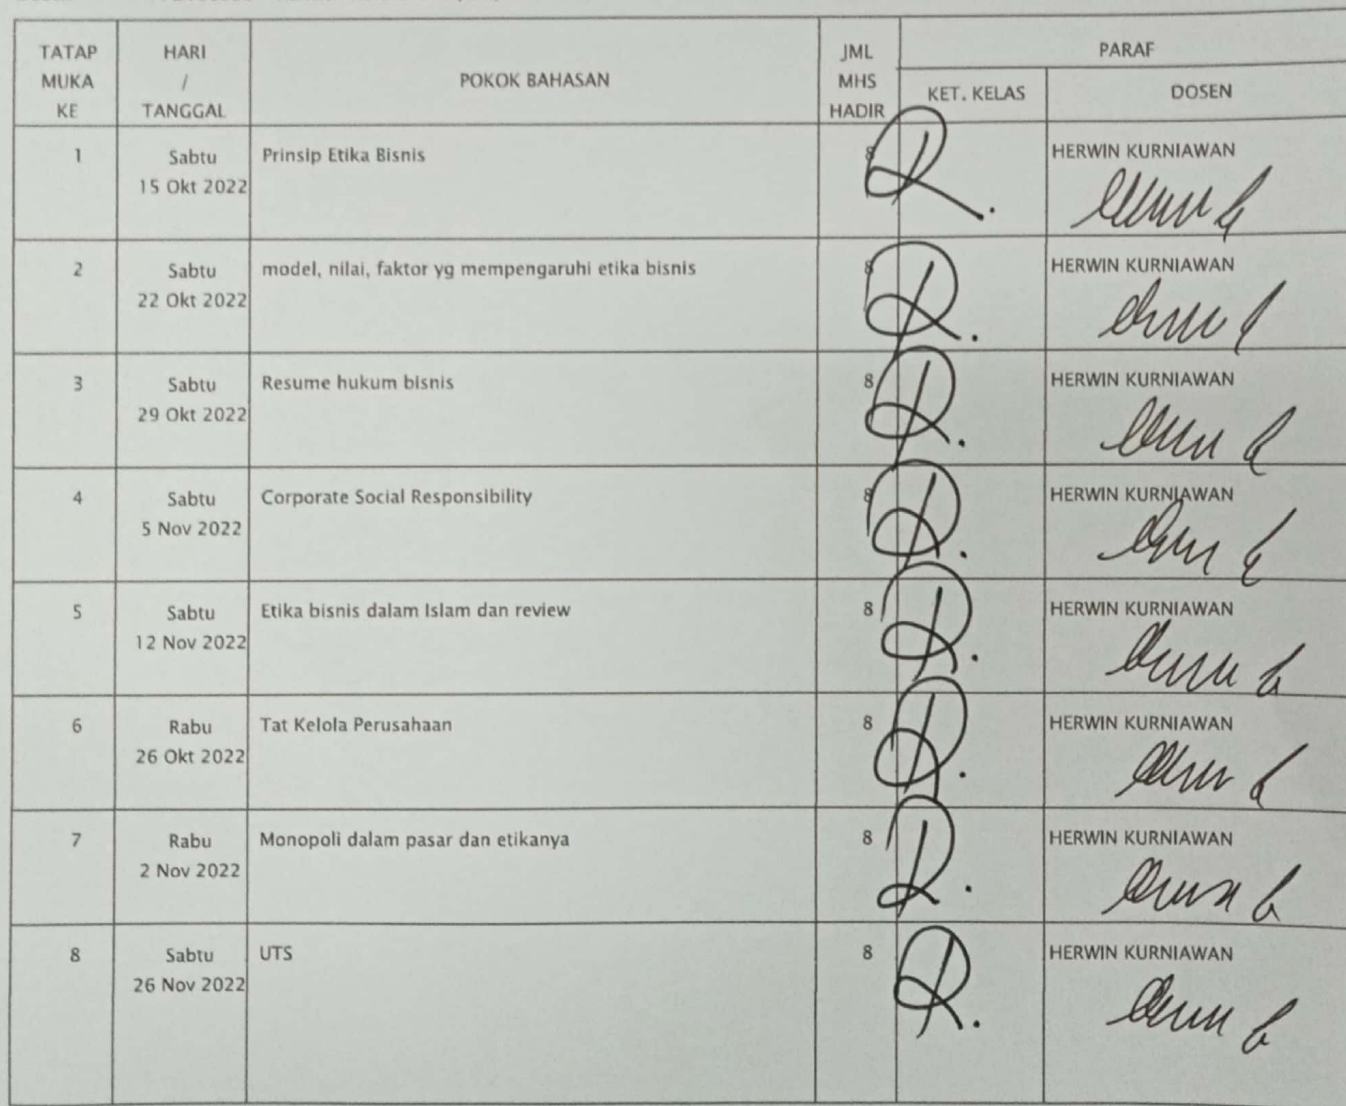 TATAP MUKA KE
HARI / TANGGAL
POKOK BAHASAN
JML MHS HADIR
PARAF
KET. KELAS
DOSEN
1
Sabtu
15 Okt 2022
Prinsip Etika Bisnis
8
HERWIN KURNIAWAN
2
Sabtu
22 Okt 2022
model, nilai, faktor yg mempengaruhi etika bisnis
8
HERWIN KURNIAWAN
3
Sabtu
29 Okt 2022
Resume hukum bisnis
8
HERWIN KURNIAWAN
4
Sabtu
5 Nov 2022
Corporate Social Responsibility
8
HERWIN KURNIAWAN
5
Sabtu
12 Nov 2022
Etika bisnis dalam Islam dan review
8
HERWIN KURNIAWAN
6
Rabu
26 Okt 2022
Tat Kelola Perusahaan
8
HERWIN KURNIAWAN
7
Rabu
2 Nov 2022
Monopoli dalam pasar dan etikanya
8
HERWIN KURNIAWAN
8
Sabtu
26 Nov 2022
UTS
8
HERWIN KURNIAWAN